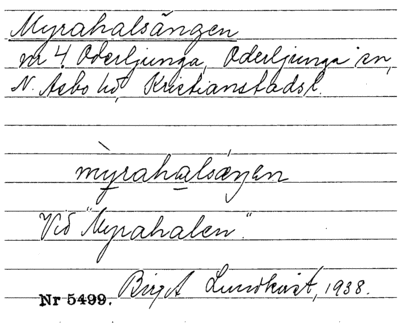 Myrahalsängen
nr 4 Oderljunga, Oderljunga sn,
N. Åsbo hd, Kristianstads l.
mỳrahalsáŋen
Vid "Myrahalen".
Nr 5499. Birgit Lundkvist, 1938.